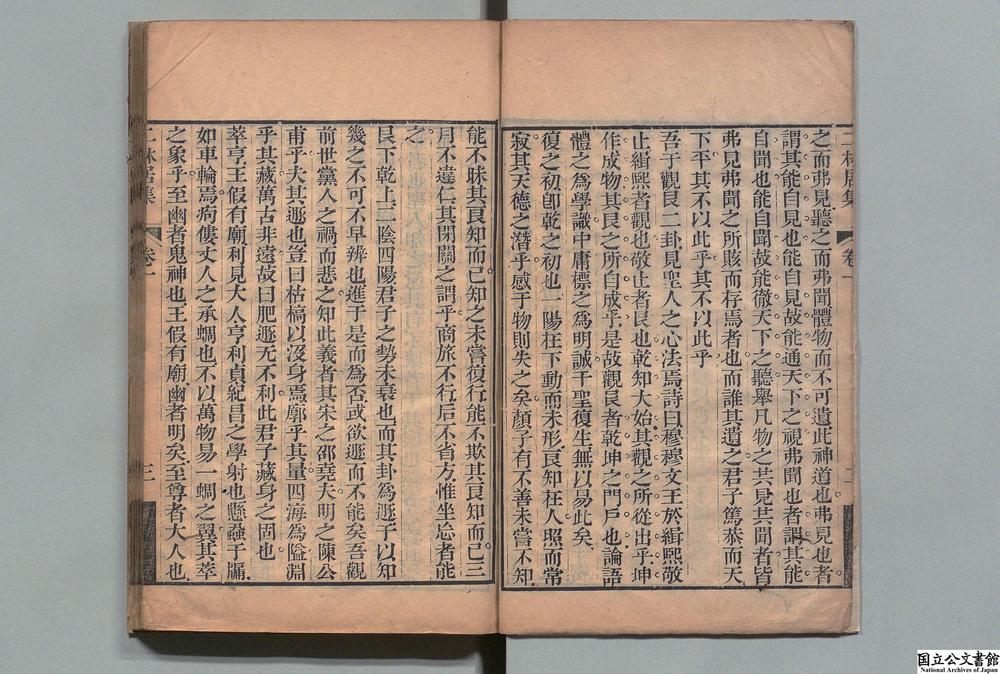 二林居集 卷一 二
之而弗見聽之而弗聞體物而不可遺此神道也弗見也者
謂其能自見也能自見故能通天下之視弗聞也者謂其能
自聞也能自聞故能徹天下之聽舉凡物之共見共聞者皆
弗見弗聞之所賅而存焉者也而誰其遺之君子篤恭而天
下平其不以此乎其不以此乎
吾于觀艮二卦見聖人之心法焉詩曰穆穆文王於緝熙敬
止緝熙者觀也敬止者艮也乾知大始其觀之所從出乎坤
作成物其艮之所自成乎是故觀艮者乾坤之門戶也論語
體之爲學識中庸標之爲明誠千聖復生無以易此矣
復之初卽乾之初也一陽在下動而未形良知在人照而常
寂其天德之潛乎感于物則失之矣顏子有不善未嘗不知
能不昧其良知而已知之未嘗復行能不欺其良知而已三
月不違仁其閉關之謂乎商旅不行后不省方惟坐忘者能
之
艮下乾上二陰四陽君子之勢未衰也而其卦爲遯于以知
幾之不可不早辨也進于是而爲否或欲遯而不能矣吾觀
前世黨人之禍而悲之知此義者其宋之邵堯夫明之陳公
甫乎夫其遯也豈曰枯槁以沒身焉廓乎其量四海爲隘淵
乎其藏萬古非遠故曰肥遯无不利此君子藏身之固也
萃亨王假有廟利見大人亨利貞紀昌之學射也懸蝨于牖
如車輪焉痀僂丈人之承蜩也不以萬物易一蜩之翼其萃
之象乎至幽者鬼神也王假有廟幽者明矣至尊者大人也
二林居集 卷一 三
国立公文書館
National Archives of Japan